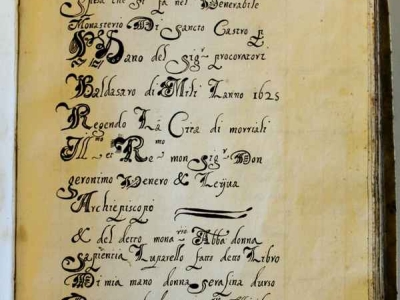 Spesa che si fa nel Venerabile
Monasterio Di Santo Castro P
Mano del sig.r procoratori
Baldasaro di Mili Lanno 1625
Regendo La Cita di morriali
Ill.mo et Re.mo mon sig.r Don
geronimo Venero & Leijua
Archiepiscopo
& del detto mona.rio Abba donna
Sapiencia Luparello fatto detto Libro
Di mia mano donna serafina durso